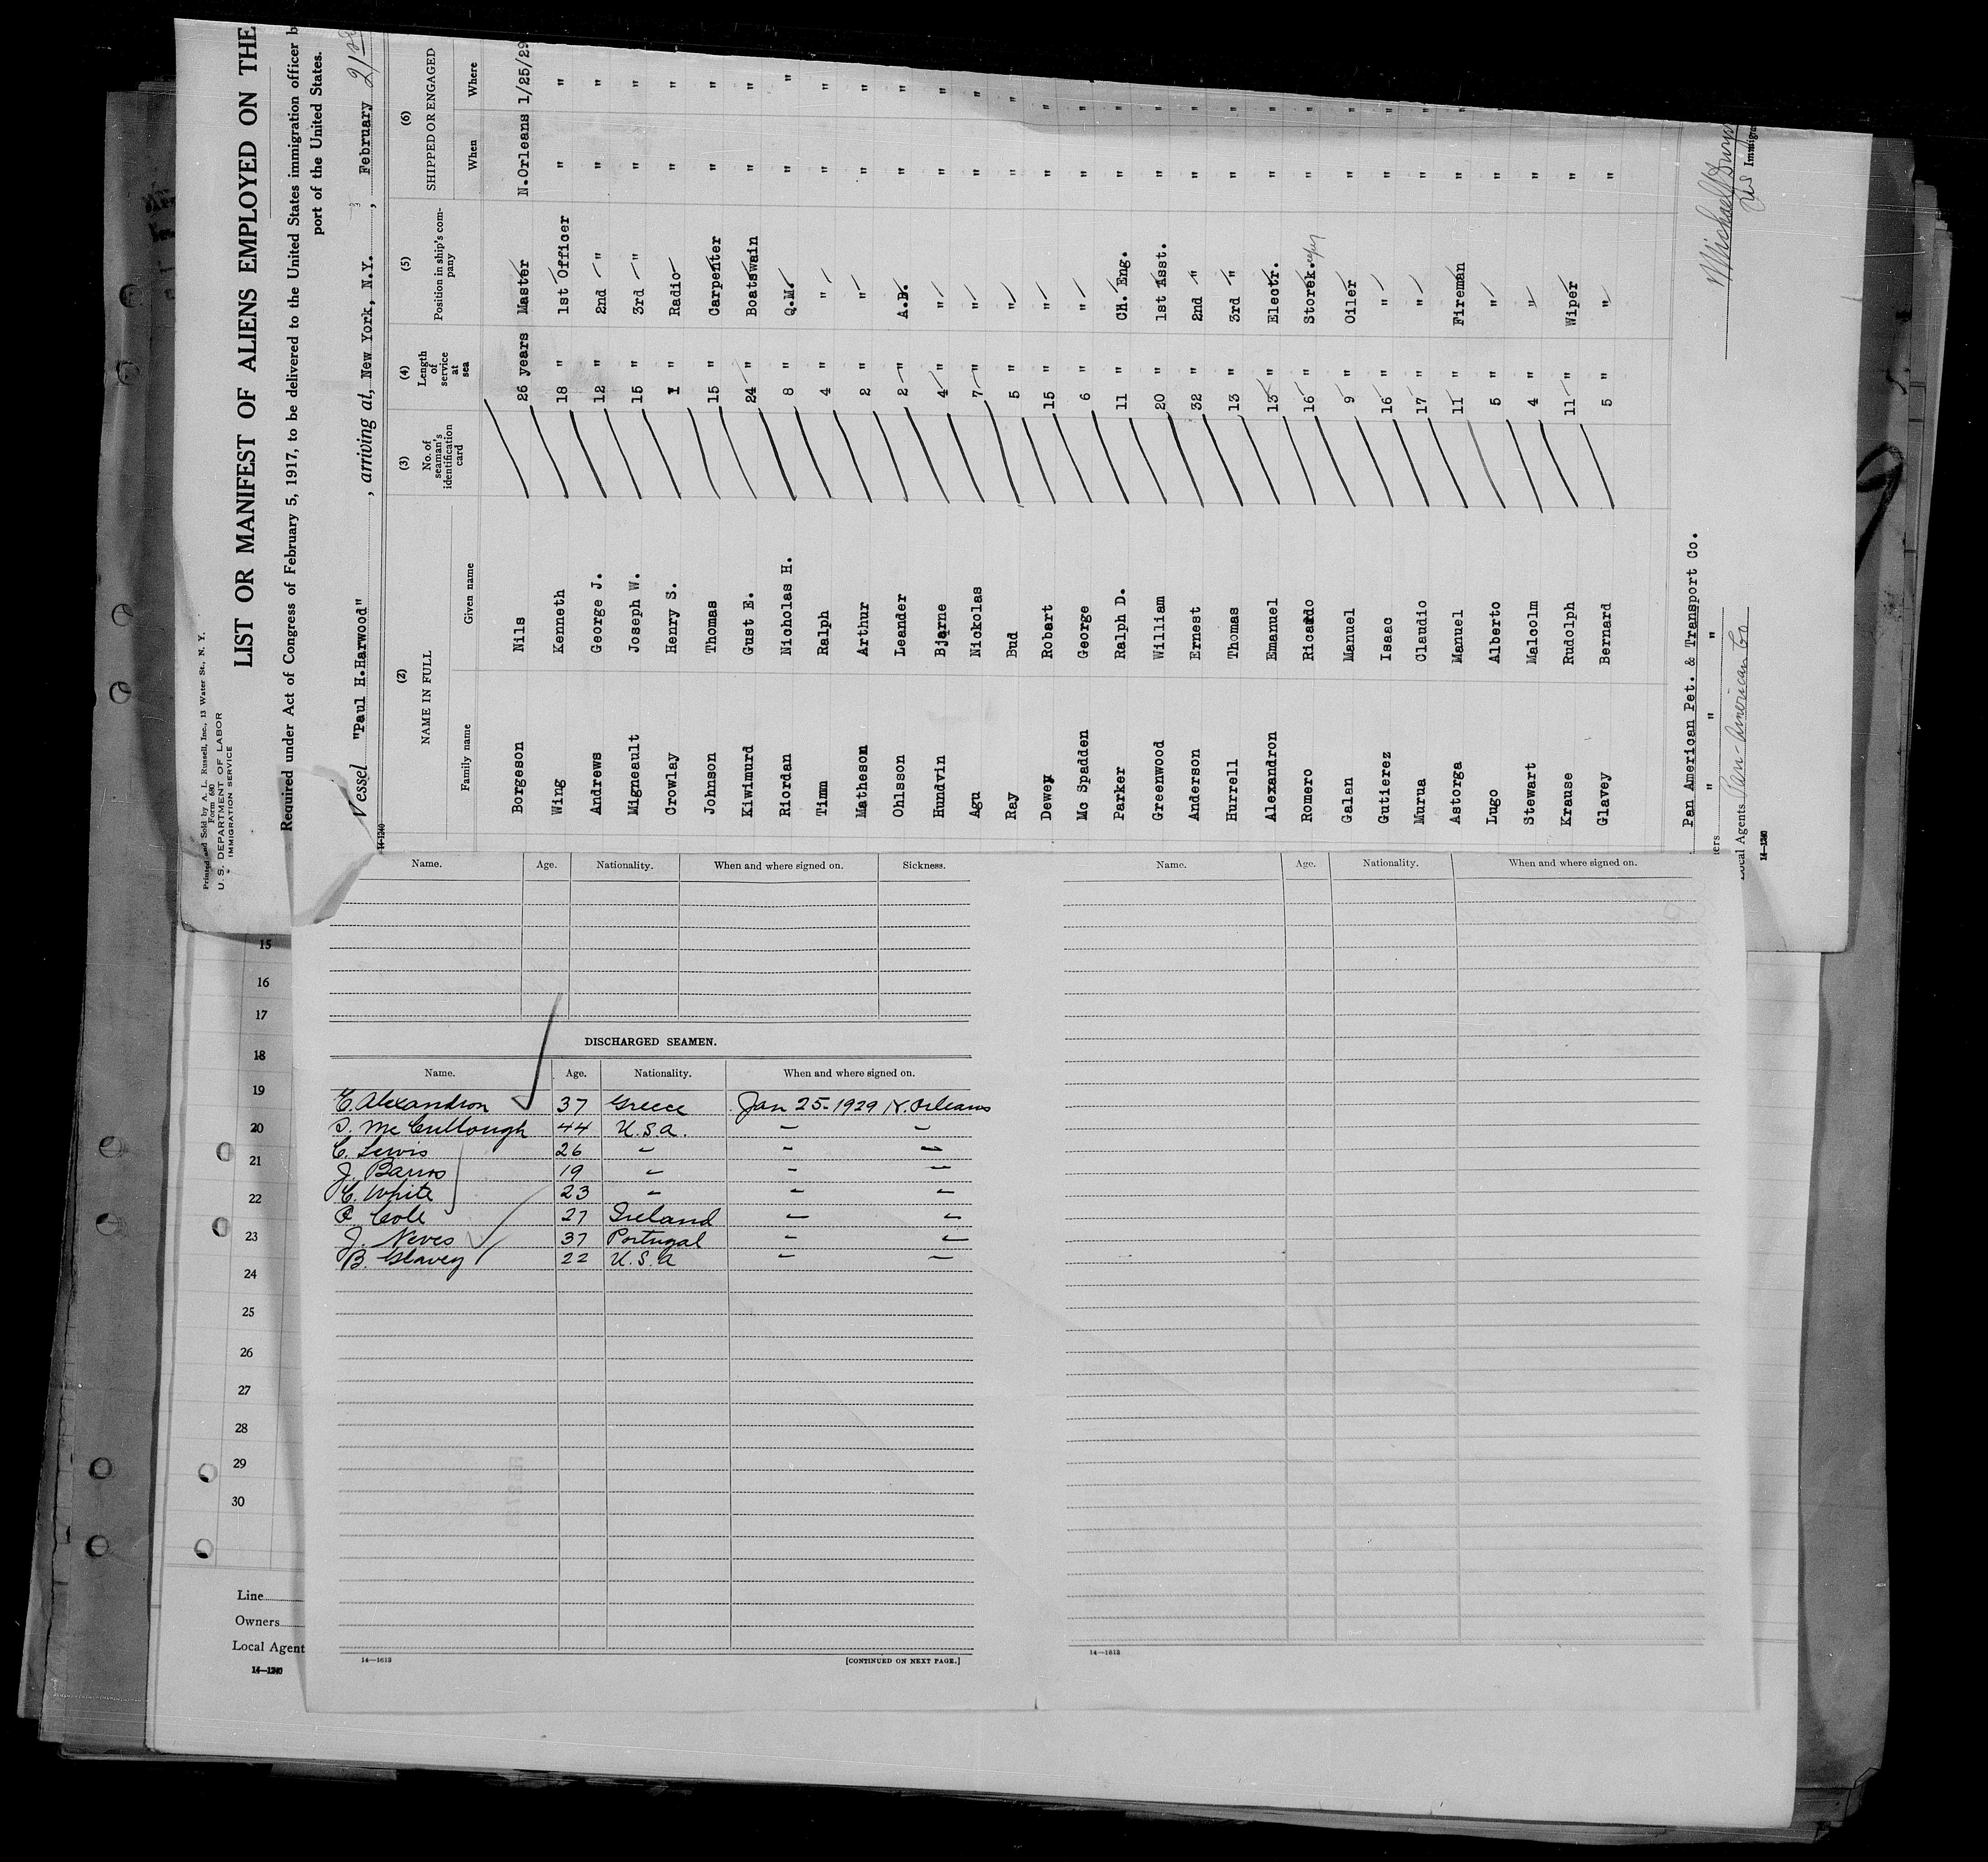 Printed and Sold by A. L. Russell, Inc., 13 Water St., N. Y.
Form 680
U. S. DEPARTMENT OF LABOR
IMMIGRATION SERVICE
LIST OR MANIFEST OF ALIENS EMPLOYED ON THE
Required under Act of Congress of February 5, 1917, to be delivered to the United States immigration officer b
port of the United States.
Vessel "Paul H.Harwood" , arriving at, New York, N.Y. , February 21st
14-1240
(2) (3) (4) (5) (6)
NAME IN FULL No. of seaman's identification card Length of service at sea Position in ship's com-pany SHIPPED OR ENGAGED
Family name Given name When Where
Borgeson Nils 26 years Master N.Orleans 1/25/29
Wing Kenneth 18 " 1st Officer " "
Andrews George J. 12 " 2nd " " "
Migneault Joseph W. 15 " 3rd " " "
Crowlay Henry S. 1 " Radio " "
Johnson Thomas 15 " Carpenter " "
Kiwimurd Gust E. 24 " Boatswain " "
Riordan Nicholas H. 8 " Q.M. " "
Timm Ralph 4 " " " "
Matheson Arthur 2 " " " "
Ohlsson Leander 2 " A.B. " "
Hundvin Bjarne 4 " " " "
Agu Nickolas 7 " " " "
Ray Bud 5 " " " "
Dewey Robart 15 " " " "
Mc Spadden George 6 " " " "
Parker Ralph D. 11 " CH. Eng. " "
Greenwood William 20 " 1st Asst. " "
Anderson Ernest 32 " 2nd " " "
Hurrell Thomas 13 " 3rd " " "
Alexandron Emanuel 13 " Electr. " "
Romero Ricardo 16 " Storek. " "
Galan Manuel 9 " Oiler " "
Gutierez Isaac 16 " " " "
Murua Claudio 17 " " " "
Astorga Manuel 11 " Fireman " "
Lugo Alberto 5 " " " "
Stewart Malcolm 4 " " " "
Krause Rudolph 11 " Wiper " "
Glavey Bernard 5 " " " "
Pan American Pet. & Transport Co.
ers " " "
Local Agents Pan-American Co
14-1240
Michael
US Immigra
Name. Age. Nationality. When and where signed on. Sickness.
Name. Age. Nationality. When and where signed on.
DISCHARGED SEAMEN.
Name. Age. Nationality. When and where signed on.
E. Alexandron 37 Greece Jan 25-1929 N. Orleans
S. McCullough 44 U.S.A. " "
C. Lewis 26 " " "
J. Barros 19 " " "
C. White 23 " " "
P. Cole 27 Ireland " "
J. Neves 37 Portugal " "
B. Glavey 22 U.S.A " "
14—1613
[CONTINUED ON NEXT PAGE.]
14—1613
15
16
17
18
19
20
21
22
23
24
25
26
27
28
29
30
Line
Owners
Local Agent
14—1240